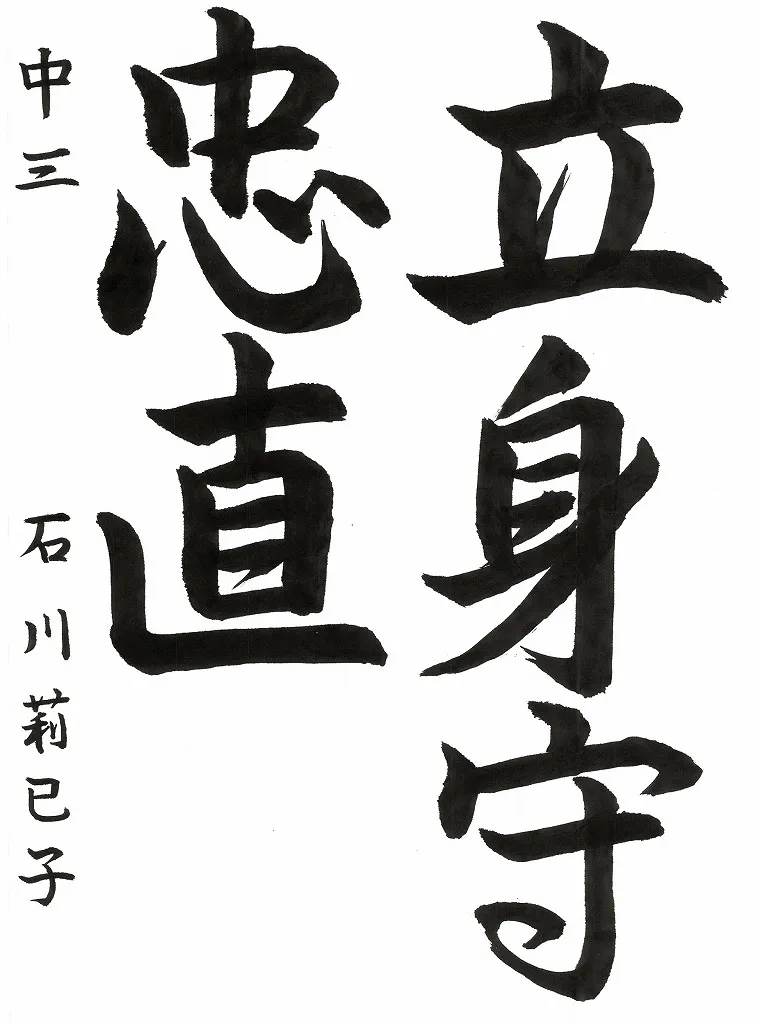 立身守
忠直
中三 石川莉已子